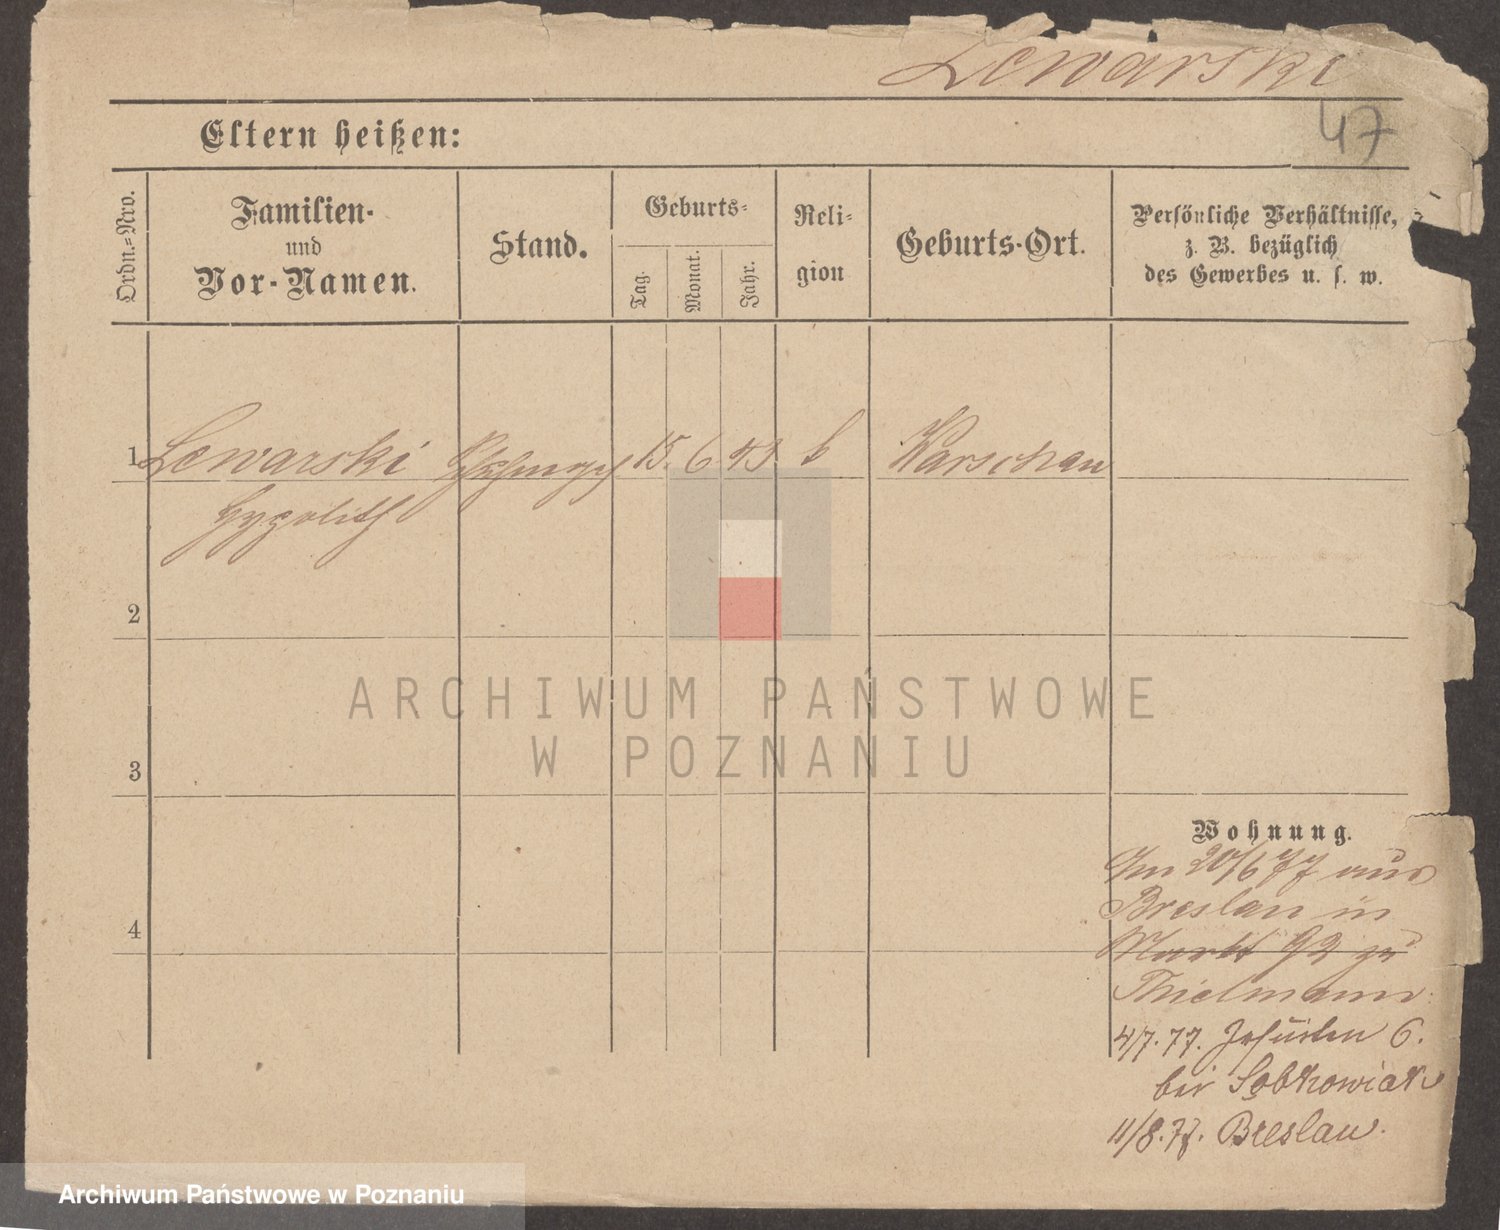 Lewarski
47
Eltern heißen:
Ordn.=Nro.
Familien-
und
Vor-Namen.
Stand.
Geburts=
Tag.
Monat.
Jahr.
Reli-
gion
Geburts-Ort.
Persönliche Verhältnisse,
z. B. bezüglich
des Gewerbes u. s. w.
1 Lewarski 15. 6 43 k Warschau
Hypolith
2
3
4
Wohnung.
Am 20/6 77 aus
Breslau in
Markt 92 zu
Thielmann
4/7. 77. Jesuiten 6.
bei Sobkowiak
11/8. 77. Breslau.
ARCHIWUM PAŃSTWOWE
W POZNANIU
Archiwum Państwowe w Poznaniu